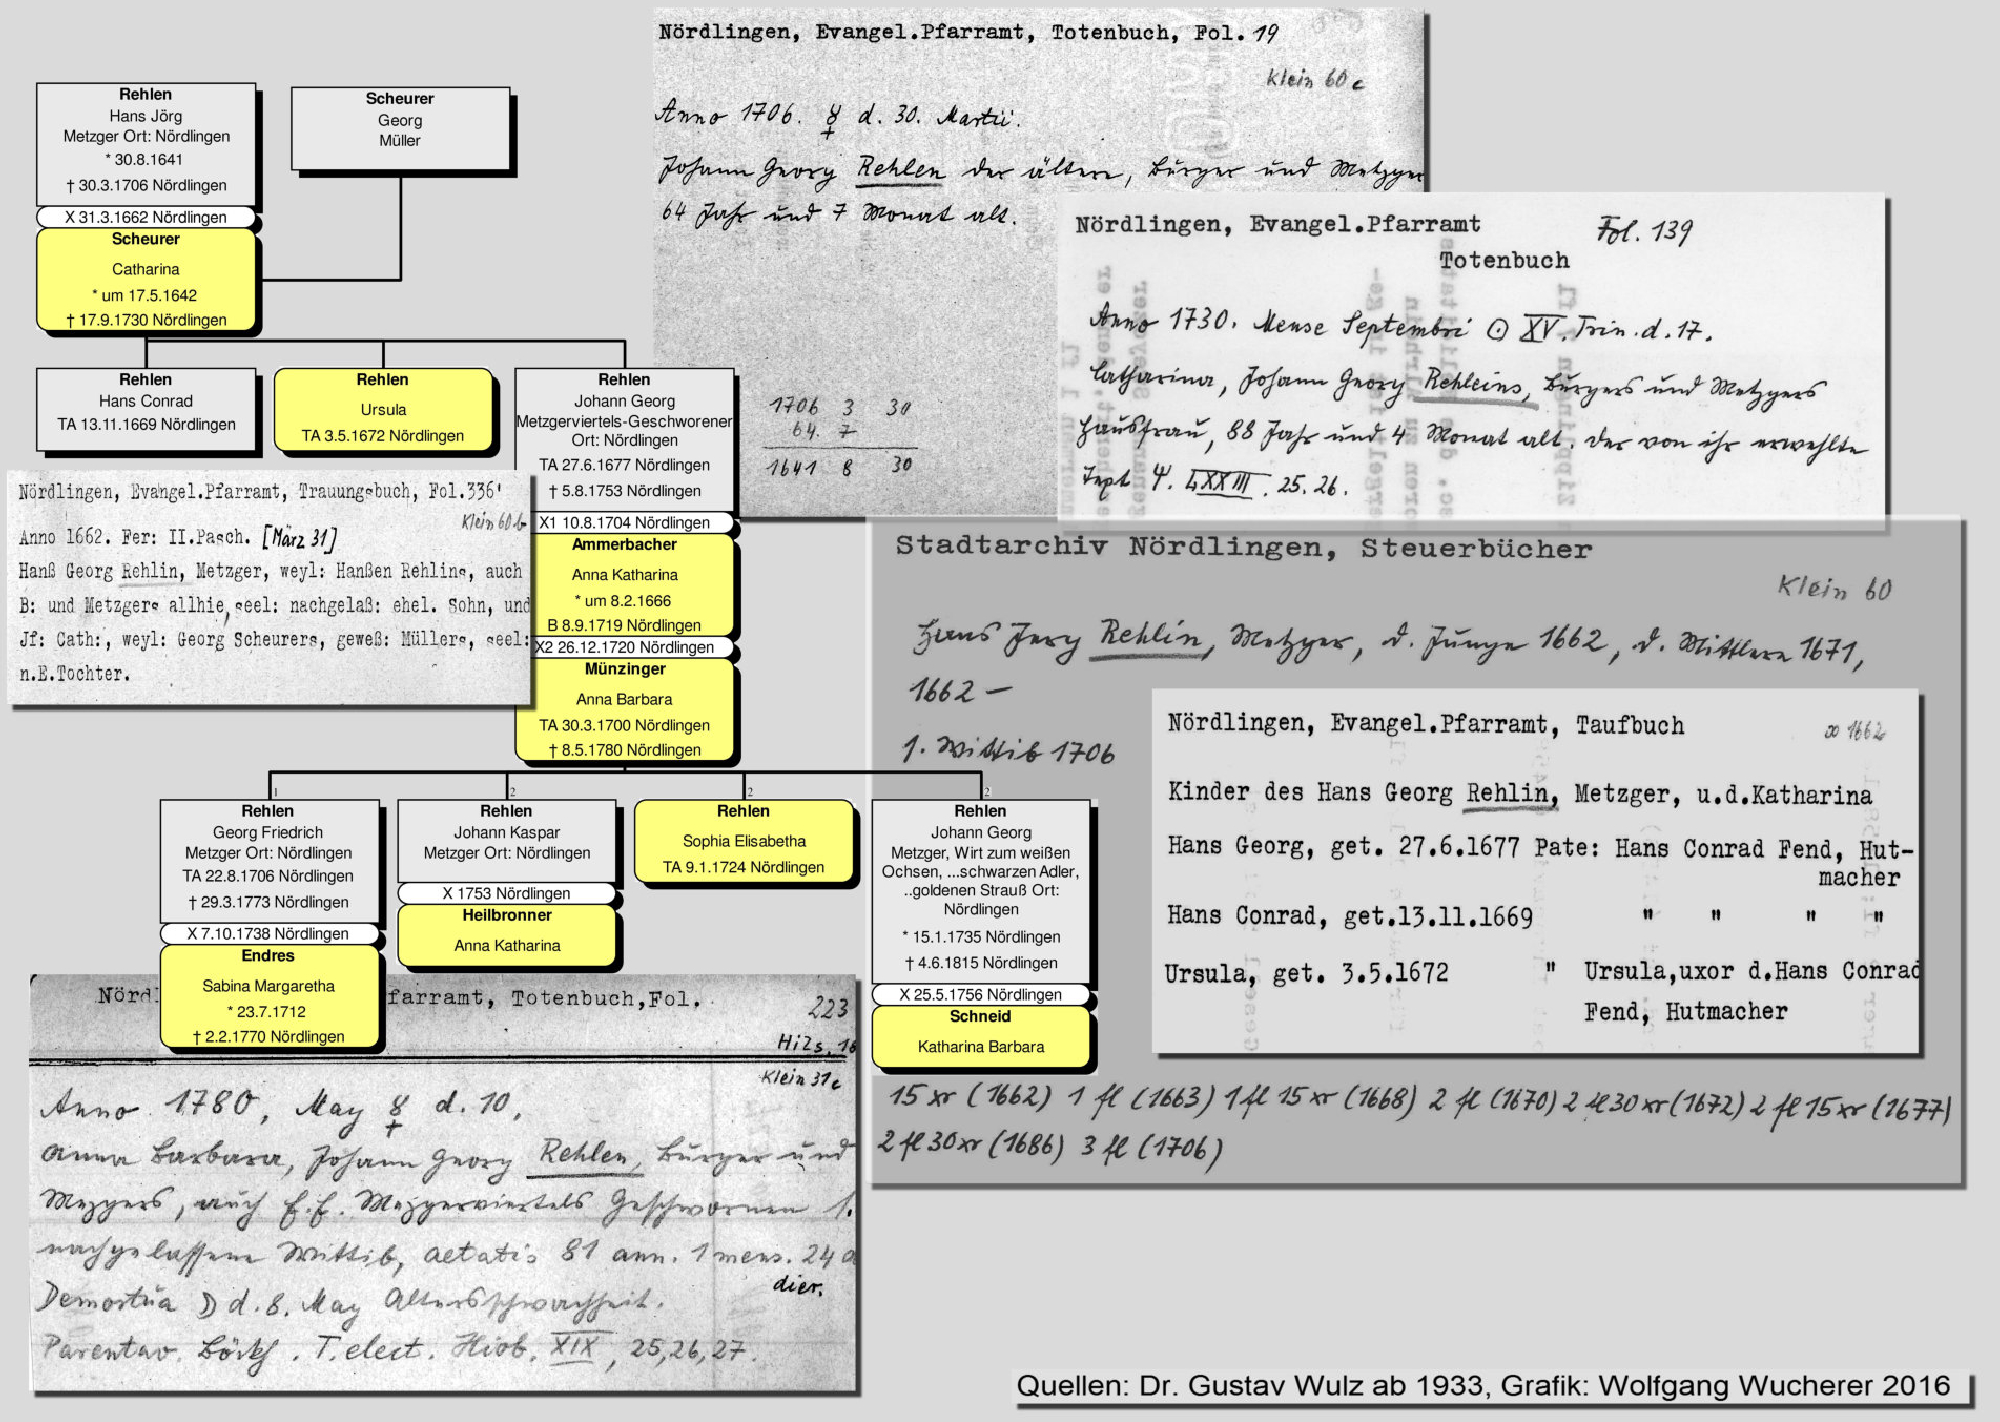 Rehlen
Hans Jörg
Metzger Ort: Nördlingen
* 30.8.1641
† 30.3.1706 Nördlingen
X 31.3.1662 Nördlingen
Scheurer
Catharina
* um 17.5.1642
† 17.9.1730 Nördlingen
Scheurer
Georg
Müller
Rehlen
Hans Conrad
TA 13.11.1669 Nördlingen
Rehlen
Ursula
TA 3.5.1672 Nördlingen
Rehlen
Johann Georg
Metzgerviertels-Geschworener
Ort: Nördlingen
TA 27.6.1677 Nördlingen
† 5.8.1753 Nördlingen
X1 10.8.1704 Nördlingen
Ammerbacher
Anna Katharina
* um 8.2.1666
B 8.9.1719 Nördlingen
X2 26.12.1720 Nördlingen
Münzinger
Anna Barbara
TA 30.3.1700 Nördlingen
† 8.5.1780 Nördlingen
1
Rehlen
Georg Friedrich
Metzger Ort: Nördlingen
TA 22.8.1706 Nördlingen
† 29.3.1773 Nördlingen
X 7.10.1738 Nördlingen
Endres
Sabina Margaretha
* 23.7.1712
† 2.2.1770 Nördlingen
2
Rehlen
Johann Kaspar
Metzger Ort: Nördlingen
X 1753 Nördlingen
Heilbronner
Anna Katharina
2
Rehlen
Sophia Elisabetha
TA 9.1.1724 Nördlingen
2
Rehlen
Johann Georg
Metzger, Wirt zum weißen
Ochsen, ...schwarzen Adler,
..goldenen Strauß Ort:
Nördlingen
* 15.1.1735 Nördlingen
† 4.6.1815 Nördlingen
X 25.5.1756 Nördlingen
Schneid
Katharina Barbara
Nördlingen, Evangel.Pfarramt, Totenbuch, Fol. 19
Klein 60c
Anno 1706. ☿ d. 30. Martii.
Johann Georg Rehlen der ältere, Burger und Metzger
64 Jahr und 7 Monat alt.
1706 3 30
64. 7
1641 8 30
Nördlingen, Evangel.Pfarramt Fol. 139
Totenbuch
Anno 1730. Mense Septembri ☉ XV. Trin. d. 17.
Catharina, Johann Georg Rehleins, Burgers und Metzgers
Hausfrau, 88 Jahr und 4 Monat alt. Der von ihr erwehlte
Text Ψ. LXXIII. 25. 26.
Nördlingen, Evangel.Pfarramt, Trauungsbuch, Fol.336'
Klein 60b
Anno 1662. Fer: II.Pasch. [März 31]
Hanß Georg Rehlin, Metzger, weyl: Hanßen Rehlins, auch
B: und Metzgers allhie, seel: nachgelaß: ehel. Sohn, und
Jf: Cath:, weyl: Georg Scheurers, geweß: Müllers, seel:
n.E.Tochter.
Stadtarchiv Nördlingen, Steuerbücher
Klein 60
Hans Jerg Rehlin, Metzger, d. Junge 1662, d. Mittlere 1671,
1662 –
1. Wittib 1706
15 xr (1662) 1 fl (1663) 1 fl 15 xr (1668) 2 fl (1670) 2 fl 30 xr (1672) 2 fl 15 xr (1677)
2 fl 30 xr (1686) 3 fl (1706)
Nördlingen, Evangel.Pfarramt, Taufbuch
∞ 1662
Kinder des Hans Georg Rehlin, Metzger, u.d.Katharina
Hans Georg, get. 27.6.1677 Pate: Hans Conrad Fend, Hut-
macher
Hans Conrad, get.13.11.1669 " " " "
Ursula, get. 3.5.1672 " Ursula,uxor d.Hans Conrad
Fend, Hutmacher
Nörd farramt, Totenbuch,Fol. 223
Hizs. 16
Klein 31c
Anno 1780, May ☿ d. 10.
Anna Barbara, Johann Georg Rehlen, Burger und
Mezgers, auch E.E. Mezgerviertels Geschwornen
nachgelassene Wittib, aetatis 81 ann. 1 mens. 24
dier.
Demortua ☽ d. 8. May Altersschwachheit.
Parentav. T. elect. Hiob. XIX, 25,26,27.
Quellen: Dr. Gustav Wulz ab 1933, Grafik: Wolfgang Wucherer 2016